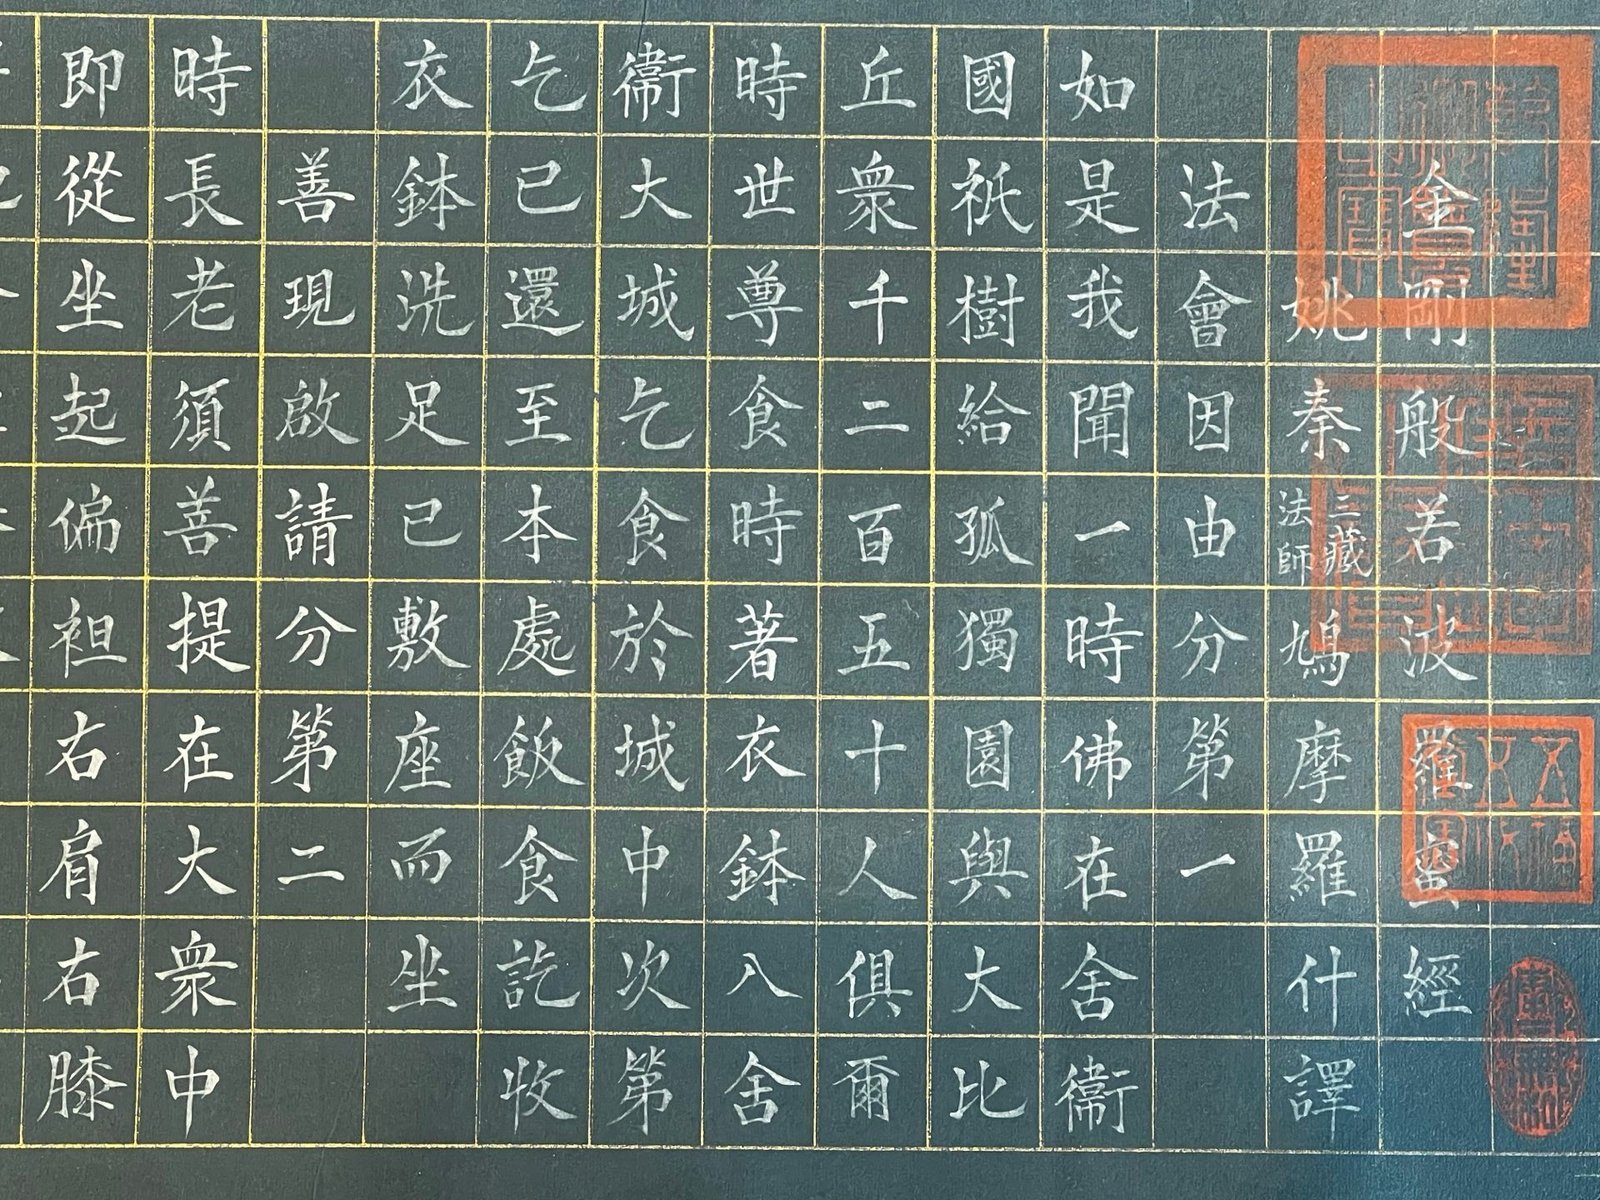 金剛般若波羅蜜經
姚秦三藏法師鳩摩羅什譯
法會因由分第一
如是我聞一時佛在舍衞
國祇樹給孤獨園與大比
丘衆千二百五十人俱爾
時世尊食時著衣鉢入舍
衞大城乞食於城中次第
乞已還至本處飯食訖收
衣鉢洗足已敷座而坐
善現啟請分第二
時長老須菩提在大衆中
即從坐起偏袒右肩右膝